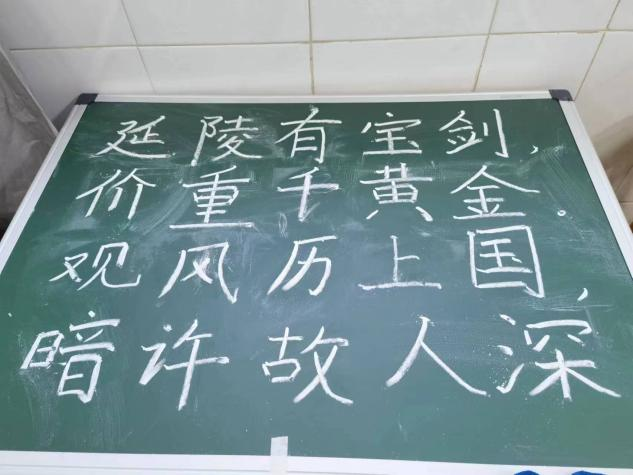 延陵有宝剑,
价重千黄金。
观风历上国,
暗许故人深